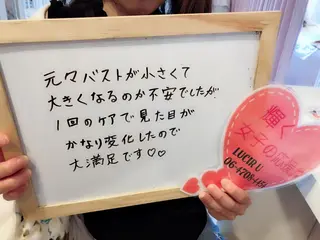 元々バストが小さくて
大きくなるのか不安でしたが
1回のケアで見た目が
かなり変化したので
大満足です♡♡
輝く
女子の応援
LUCIR U